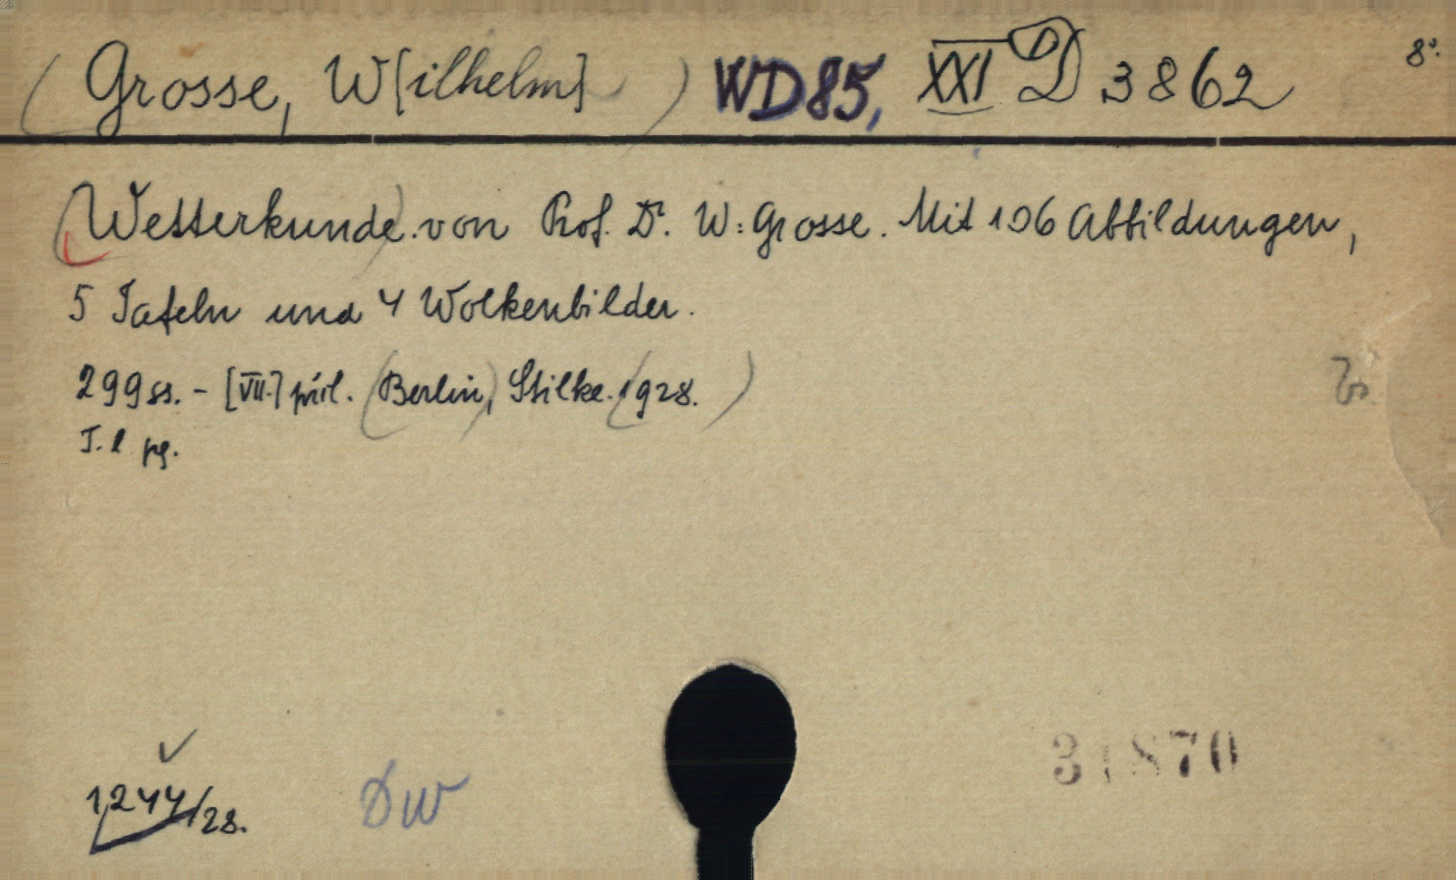 (Grosse, W[ilhelm]) WD85, XXI D 3862 8°.
(Wetterkunde) von Prof. Dr. W. Grosse. Mit 106 Abbildungen,
5 Tafeln und 4 Wolkenbilder.
299 ss. - [VII.] príl. (Berlin), Stilke. (1928.)
T. l pg.
31870
1244/28. DW